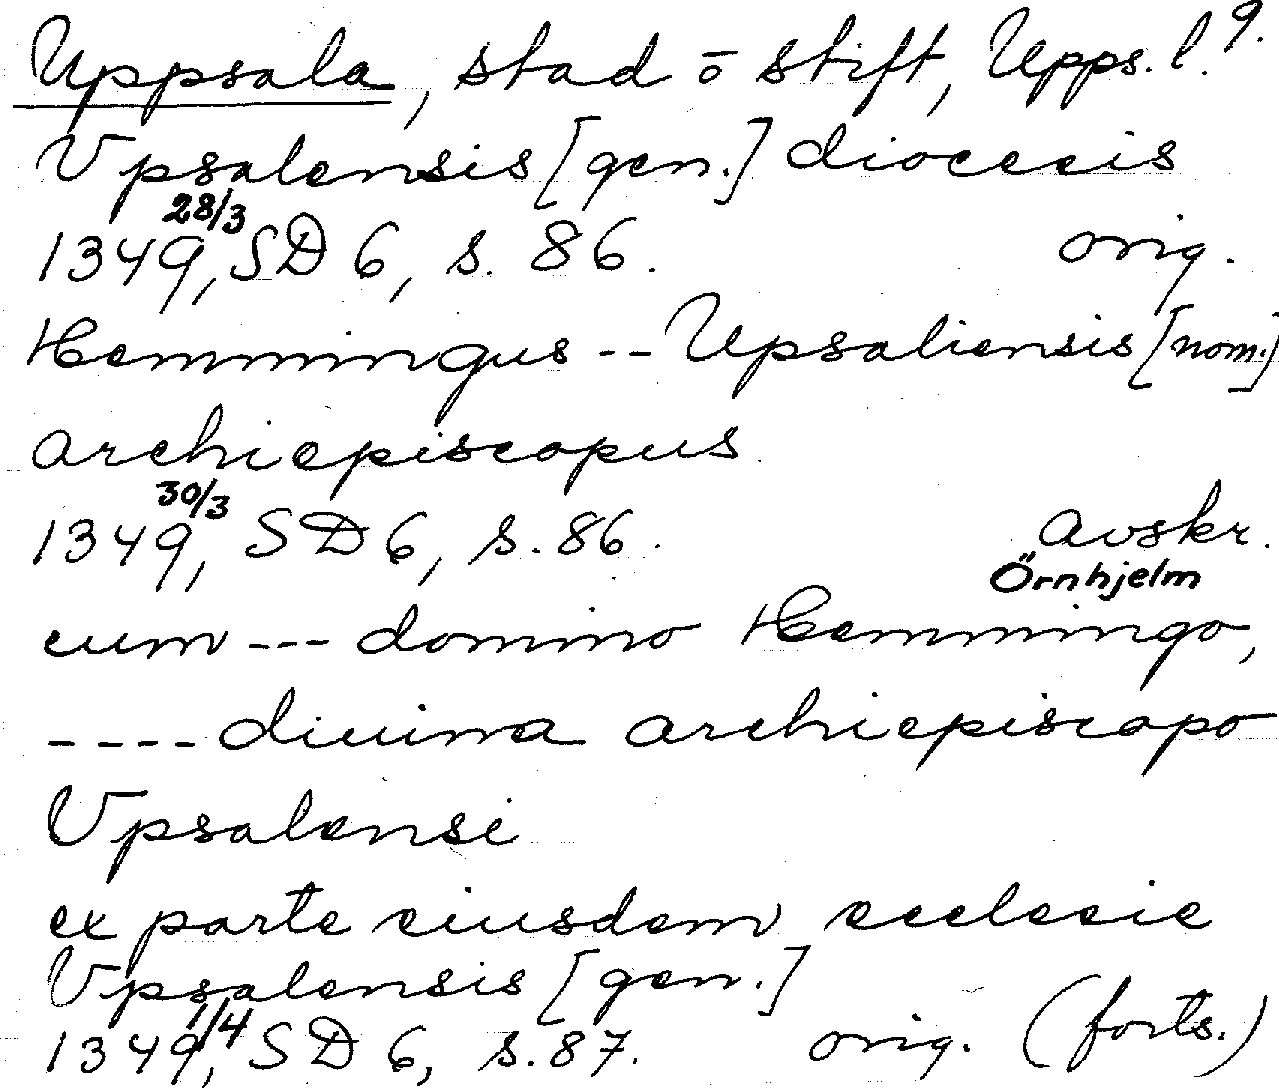 Uppsala, stad o stift, Upps. l. 9.
Vpsalensis [gen.] diocecis
1349 28/3, SD 6, s. 86. orig.
Hemmingus -- Upsaliensis [nom.]
archiepiscopus
1349 30/3, SD 6, s. 86. Avskr.
Örnhjelm
cum --- domino Hemmingo,
---- diuina archiepiscopo
Vpsalensi
ex parte eiusdem ecclecie
Vpsalensis [gen.]
1349 1/4, SD 6, s. 87. orig. (forts.)